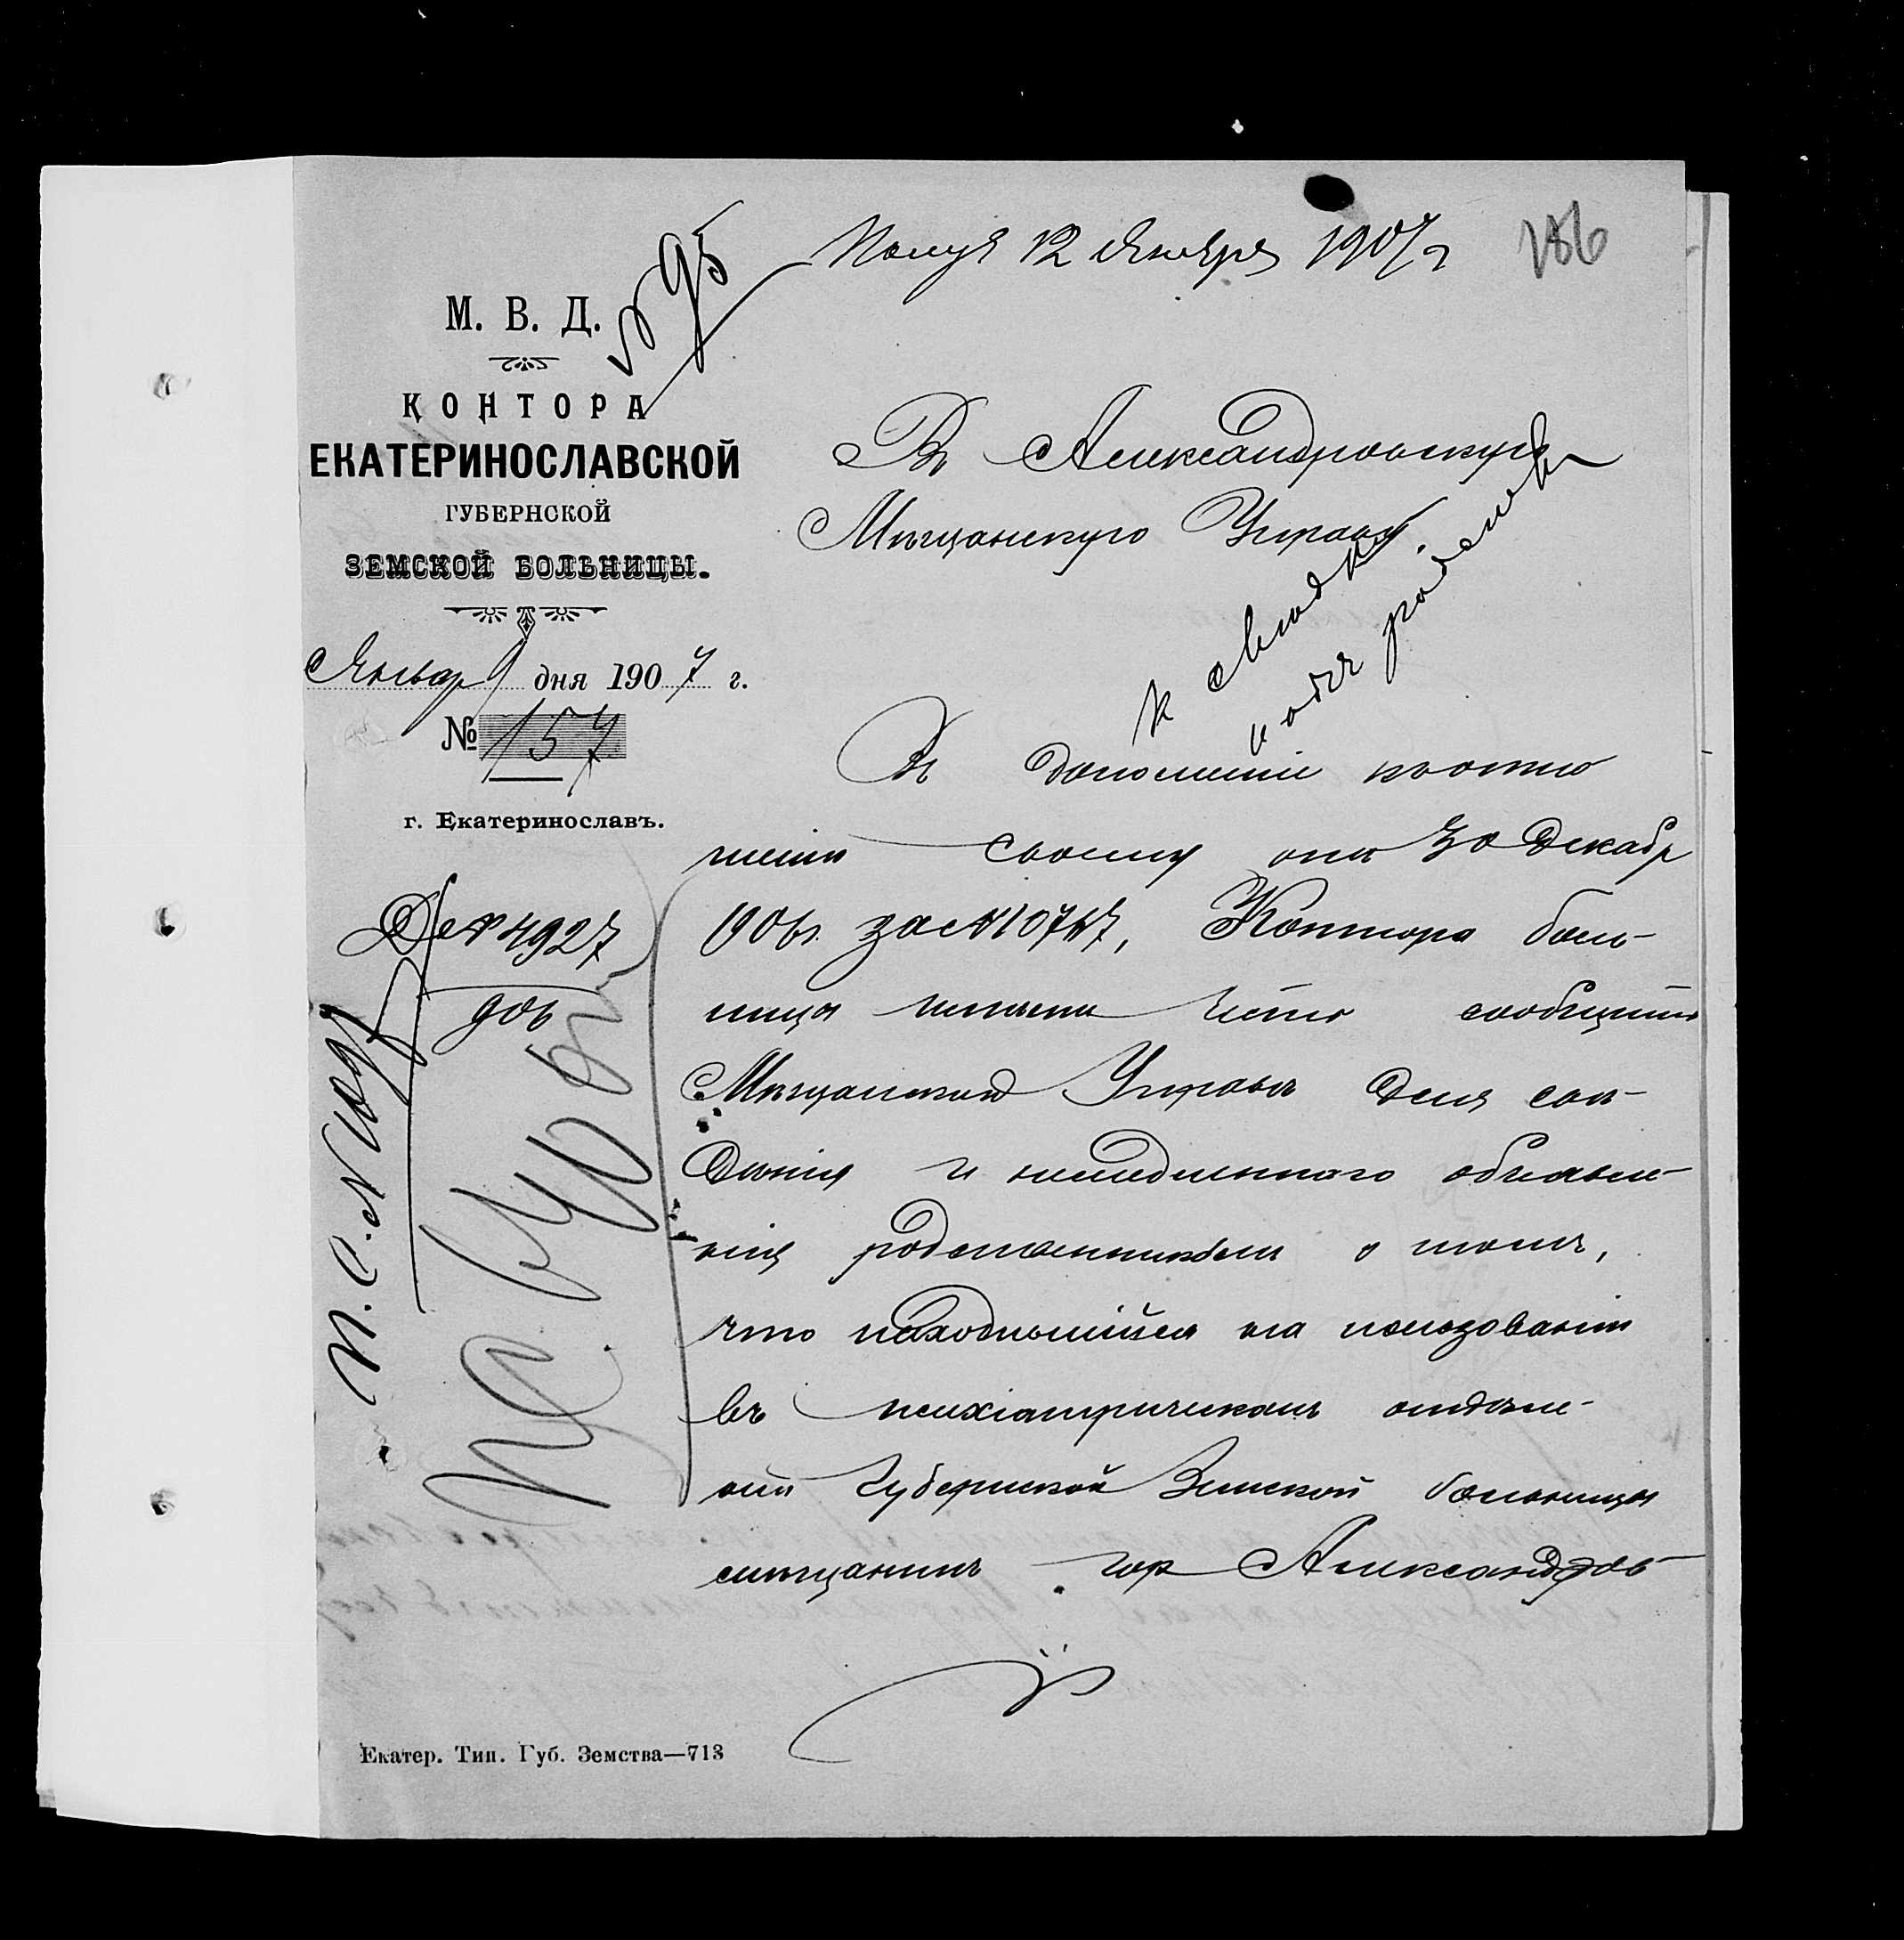 Получ 12 Января 1907 г
186
№ 95
М. В. Д.
КОНТОРА
ЕКАТЕРИНОСЛАВСКОЙ
ГУБЕРНСКОЙ
ЗЕМСКОЙ БОЛЬНИЦЫ.
Январ 9 дня 1907 г.
№ 157
г. Екатеринославъ.
Въ Александровскую
Мѣщанскую Управу.
Въ дополненіе къ отно
шенію своему отъ 30 Декабр
1906 г. за №10747, Контора боль-
ницы имѣетъ честь сообщить
Мѣщанской Управѣ для свѣ-
дѣнія и немедленнаго объявле-
нія родственникамъ о томъ,
что находившійся на пользованіи
въ психіатрическомъ отдѣле-
ніи Губернской Земской больницы
мѣщанинъ гор Александров
Де № 4927
906
Екатер. Тип. Губ. Земства—713